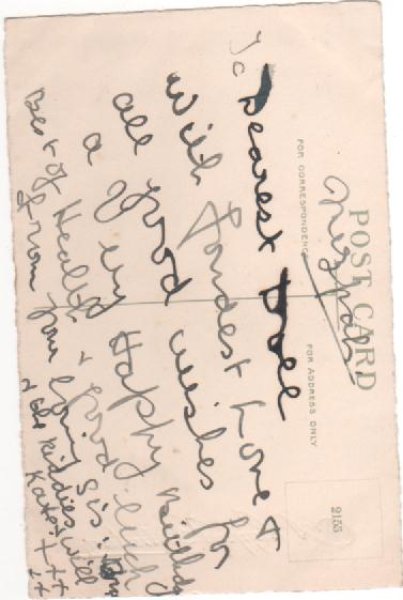 POST CARD
FOR CORRESPONDENCE
FOR ADDRESS ONLY
2155
To Dearest Doll
With Fondest Love &
all good wishes for
a very Happy Birthday
Best of Health & Good luck
from your loving Sis
& the kiddies, Will
Kate x x x
x x